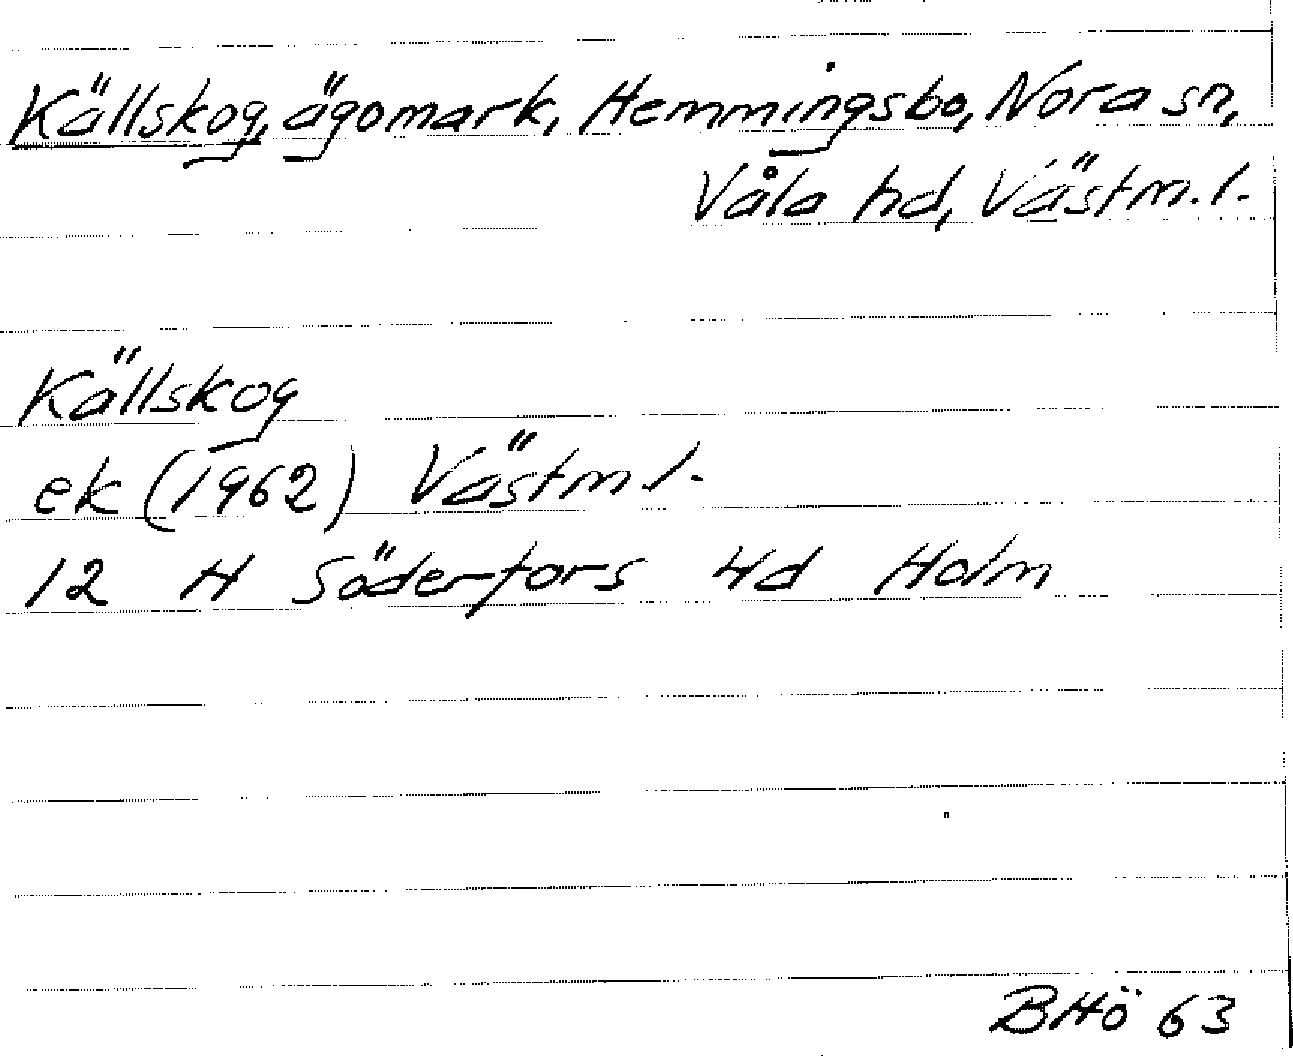 Källskog, ägomark, Hemmingsbo, Nora sn,
Våla hd, Västm. l.
Källskog
ek (1962) Västm l.
12 H Söderfors 4d Holm
BHö 63